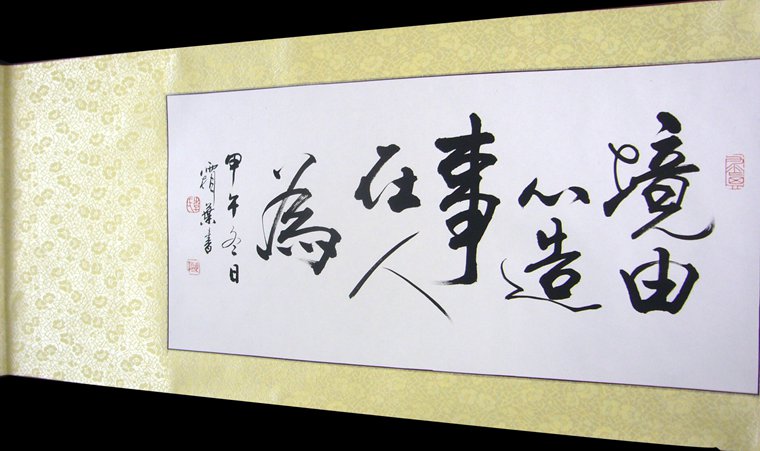 境由
心造
事
在人
為
甲午冬日
霜葉書